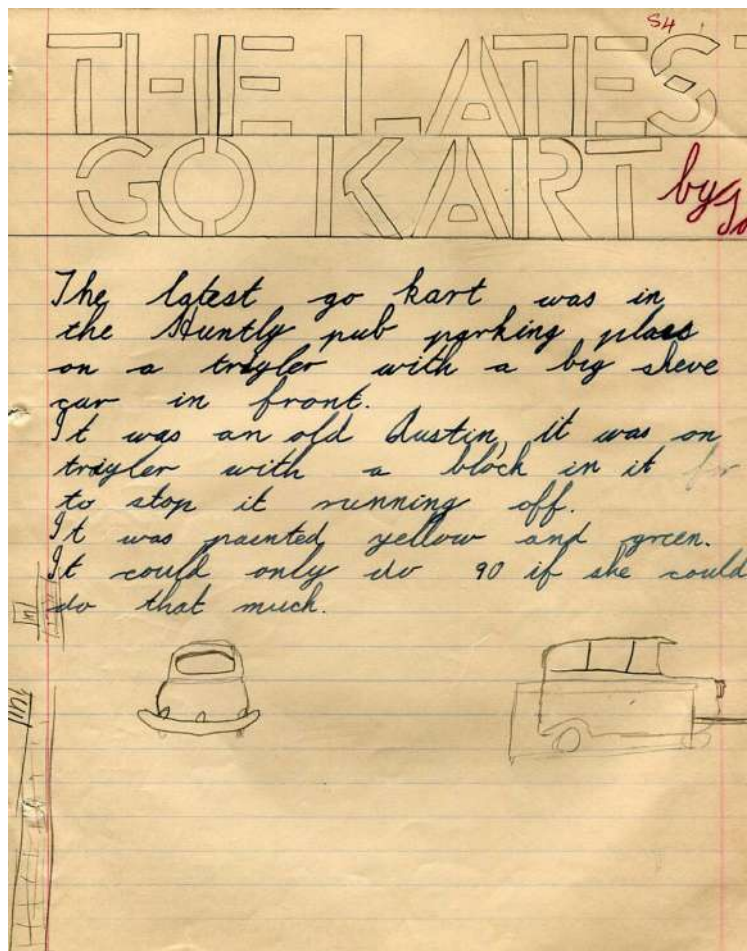 S4
THE LATEST
GO KART by
The latest go kart was in
the Huntly pub parking place
on a trayler with a big sheve
car in front.
It was an old Austin, it was on
trayler with a block in it for
to stop it running off.
It was painted yellow and green.
It could only do 90 if she could
do that much.